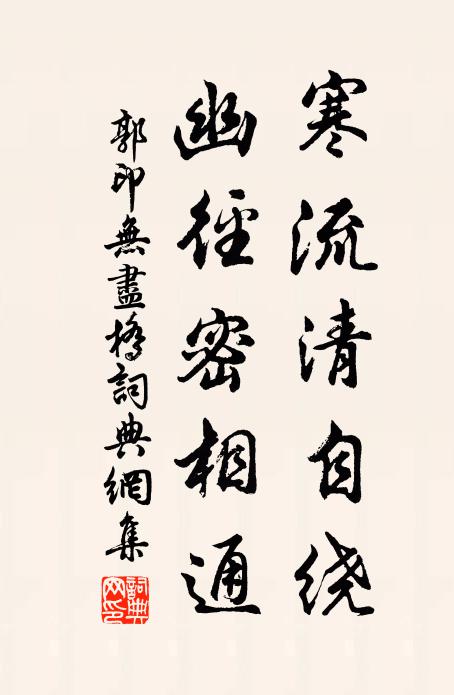 寒流清自绕
幽徑密相通
郭印無盡橋詞典網集
詞典网印